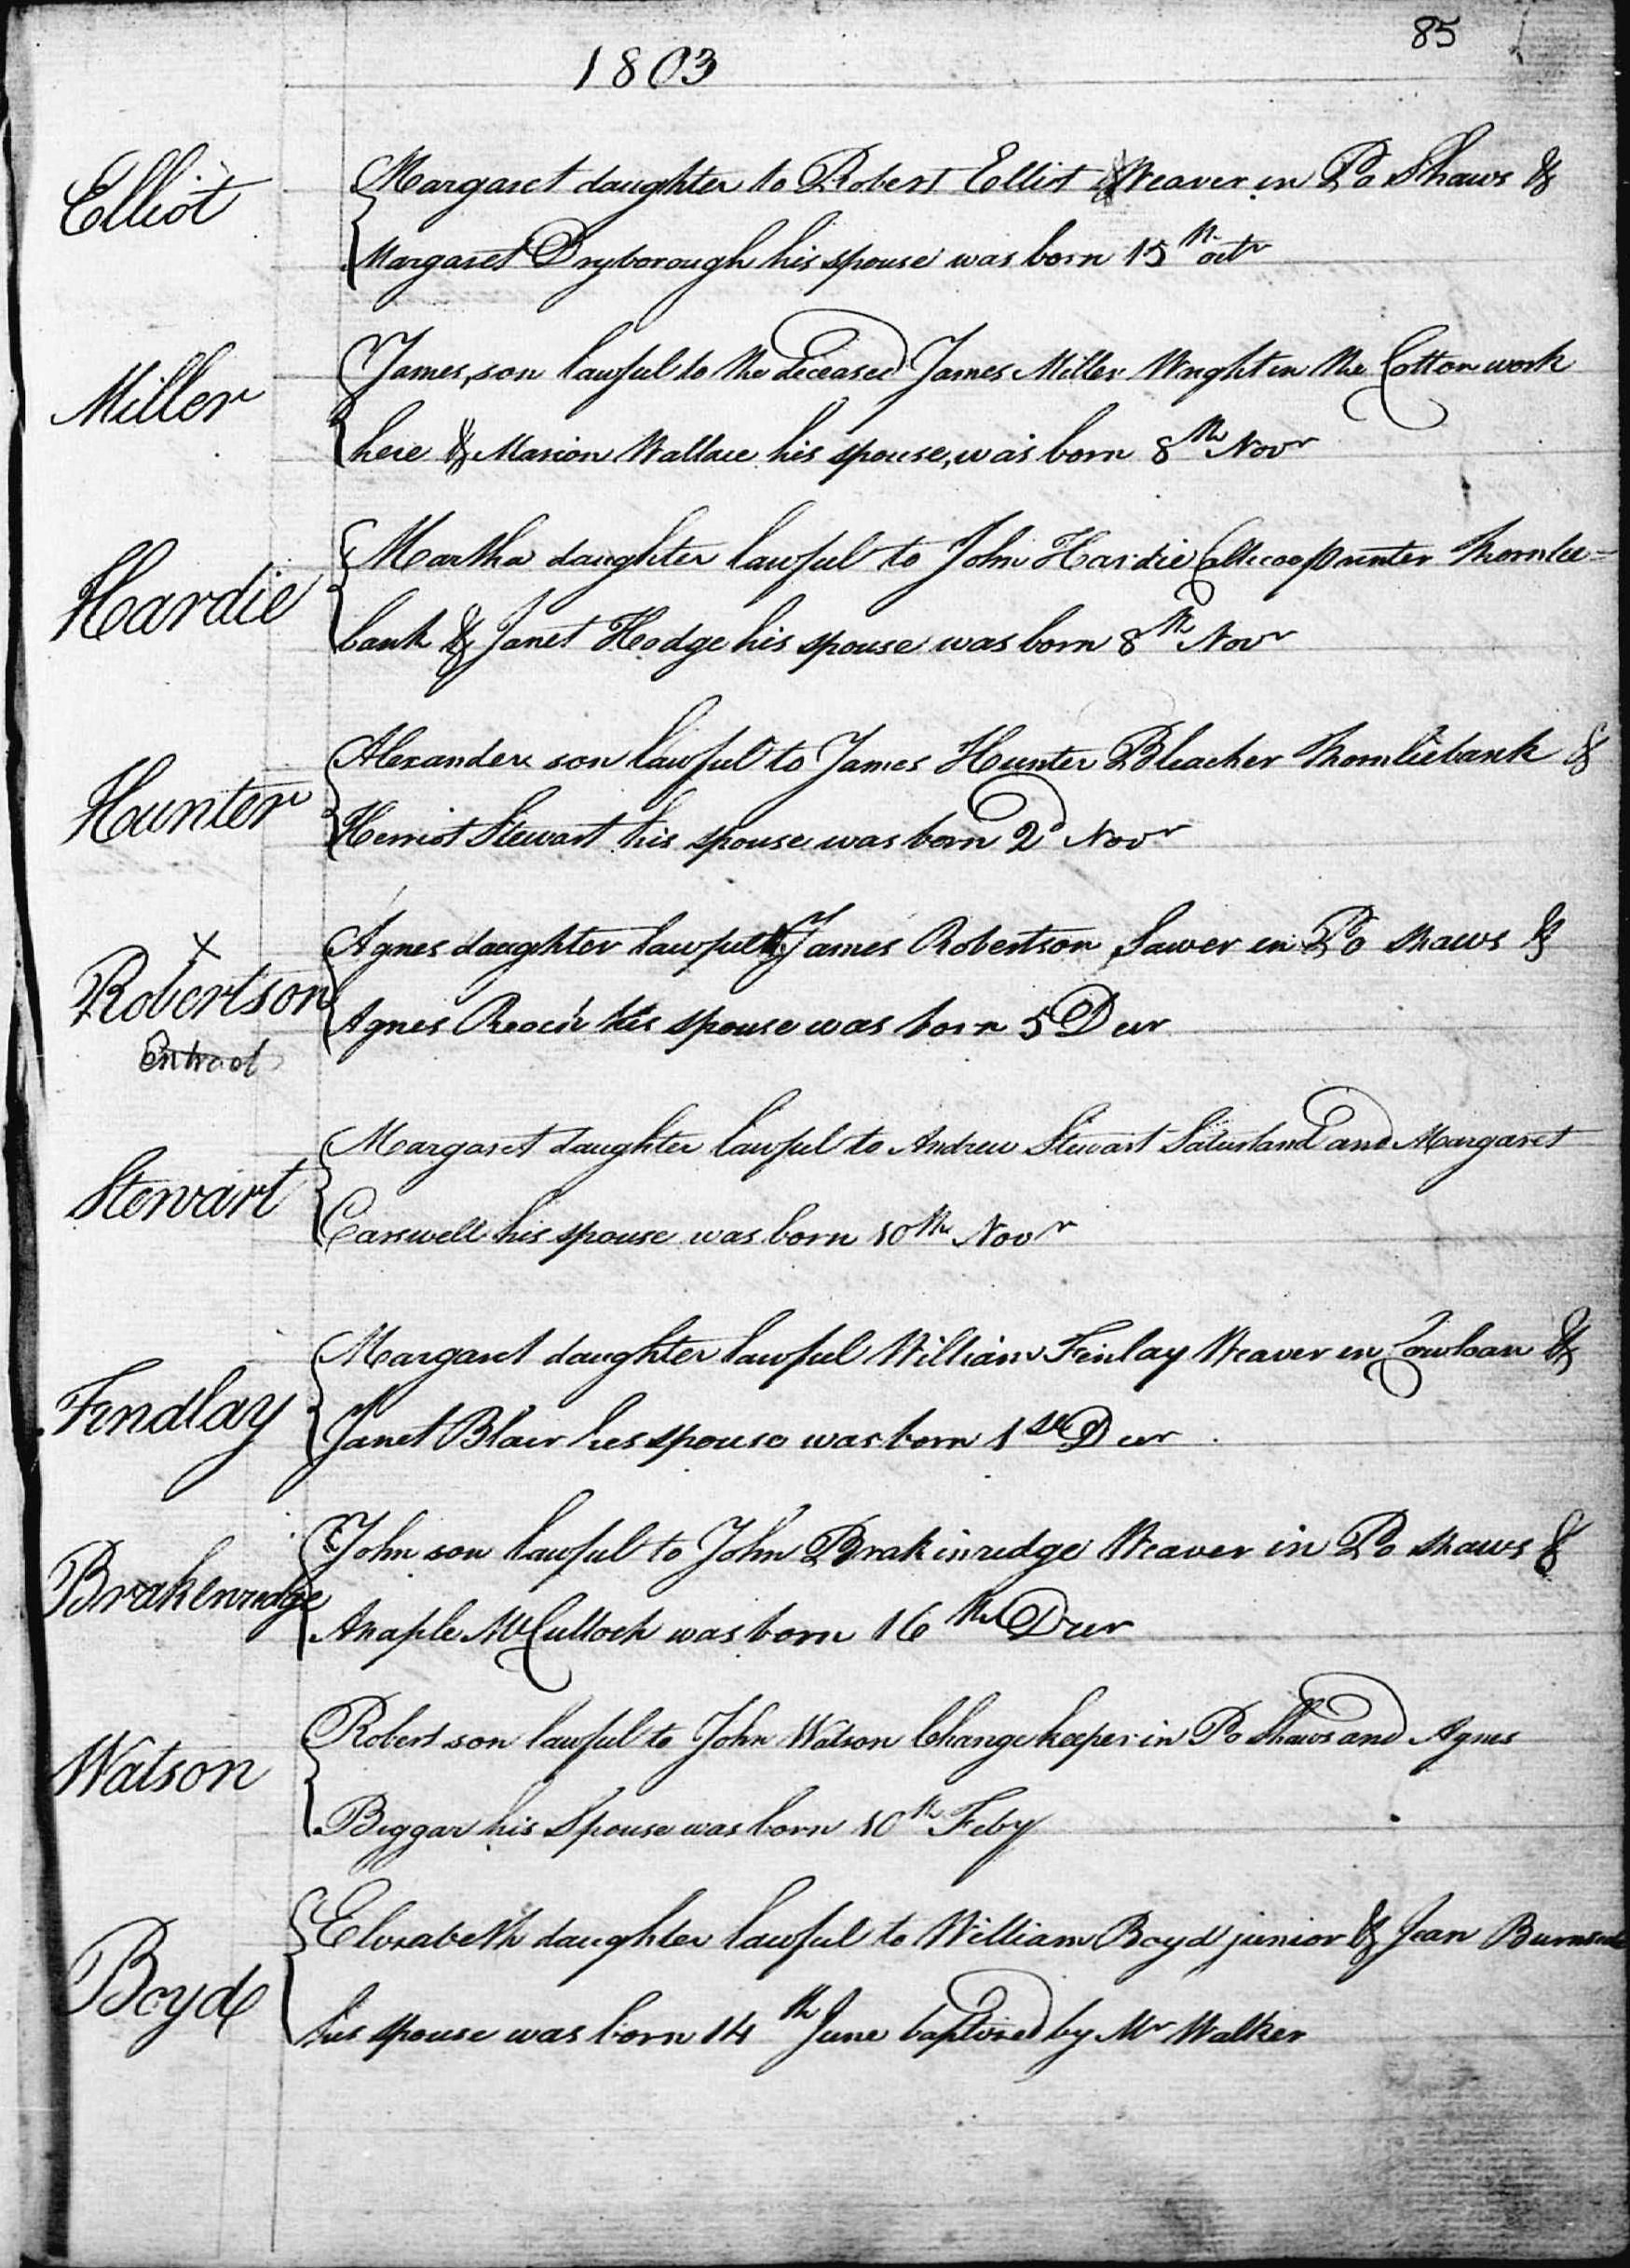 85
1803
Elliot
Margaret daughter to Robert Elliot Weaver in Po Shaws &
Margaret Dryborough his spouse was born 15th octr
Miller
James, son lawful to the deceased James Miller Wright in the Cotton work
here & Marion Wallace his spouse, was born 8th Novr
Hardie
Martha daughter lawful to John Hardie Callicoe printer Thornlie=
bank & Janet Hodge his spouse was born 8th Novr
Hunter
Alexander son lawful to James Hunter Bleacher Thornliebank &
Herriot Stewart his spouse was born 2d Novr
x
Robertson
Extract
Agnes daughter lawful to James Robertson Sawer in Po Shaws &
Agnes his spouse was born 5 Decr
Stewart
Margaret daughter lawful to Andrew Stewart and Margaret
Carswell his spouse was born 10th Novr
Findlay
Margaret daughter lawful William Finlay Weaver in Cowloan &
Janet Blair his spouse was born 1st Decr
Brakenridge
John son lawful to John Brakinridge Weaver in Po Shaws &
Anaple McCulloch was born 16th Decr
Watson
Robert son lawful to John Watson Change keeper in Po Shaws and Agnes
Biggar his Spouse was born 10th Feby
Boyd
Elizabeth daughter lawful to William Boyd junior & Jean Burnside
his spouse was born 14th June baptized by Mr Walker